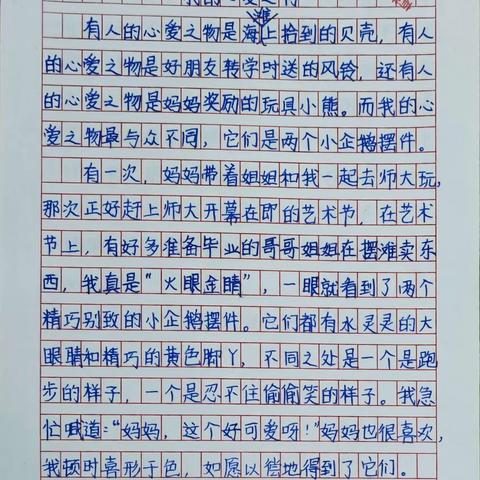 我的心爱之物
有人的心爱之物是海滩上拾到的贝壳，有人
的心爱之物是好朋友转学时送的风铃，还有人
的心爱之物是妈妈奖励的玩具小熊。而我的心
爱之物最与众不同，它们是两个小企鹅摆件。
有一次，妈妈带着姐姐和我一起去师大玩，
那次正好赶上师大开幕在即的艺术节，在艺术
节上，有好多准备毕业的哥哥姐姐在摆滩卖东
西，我真是“火眼金睛”，一眼就看到了两个
精巧别致的小企鹅摆件。它们都有水灵灵的大
眼睛和精巧的黄色脚丫，不同之处是一个是跑
步的样子，一个是忍不住偷偷笑的样子。我急
忙喊道：“妈妈，这个好可爱呀！”妈妈也很喜欢，
我顿时喜形于色，如愿以偿地得到了它们。